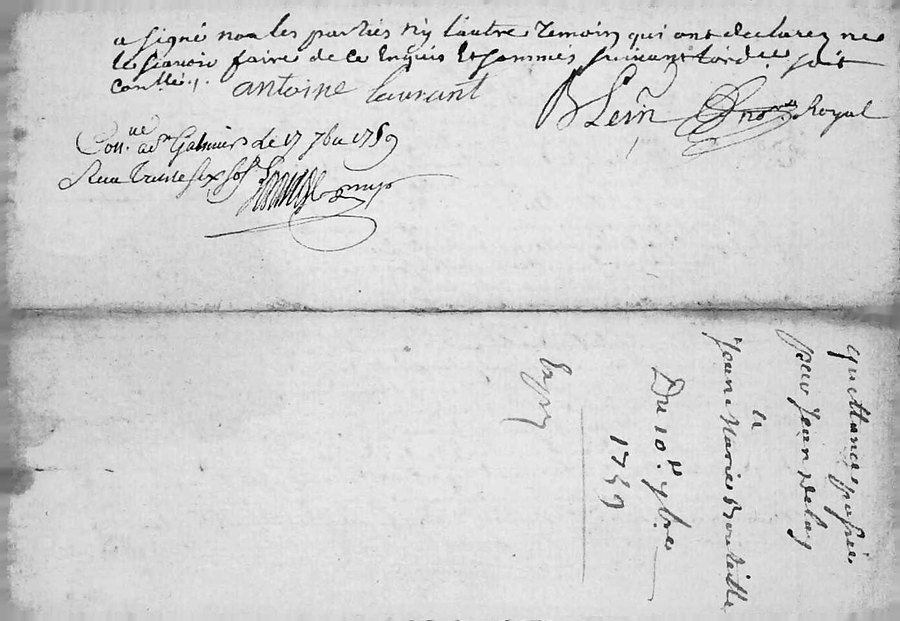 a signé non les parties ny l'autre temoin qui ont declarez ne
le scavoir faire de ce enquis et sommés suivant lordce soit
con.lé
antoine laurant
B Lein no.re Royal
Con.ue a S.t Galmier le 17 7bre 1759
Receu trente six sols
quittance passée
par Jean Delay
a
Jean Marie Bouteille
Du 10.e 7bre
1759
Exp.on